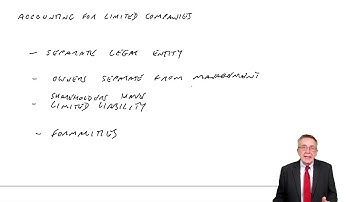 ACCOUNTING FOR LIMITED COMPANIES
- SEPARATE LEGAL ENTITY
- OWNERS SEPARATE FROM MANAGEMENT
SHAREHOLDERS HAVE
- LIMITED LIABILITY
- FORMALITIES